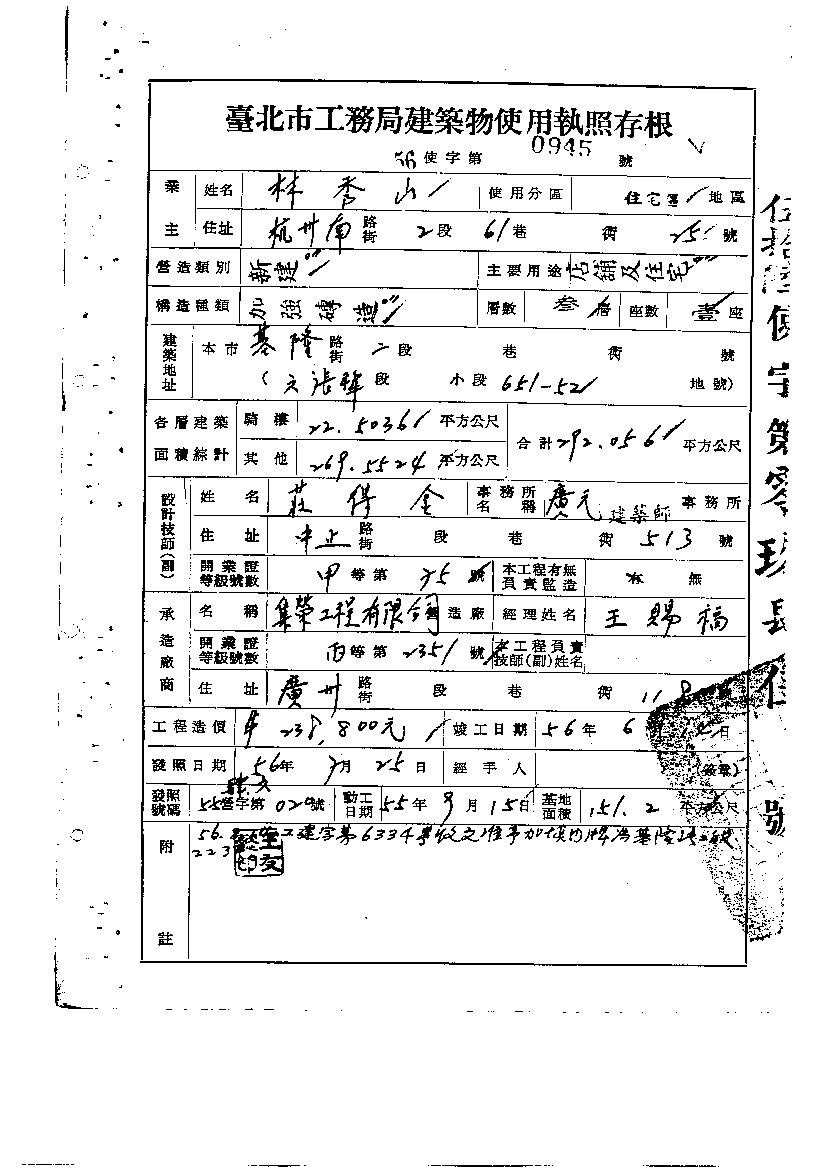 臺北市工務局建築物使用執照存根
56使字第 0945 號
業主 姓名 林秀山 使用分區 住宅區 地區
住址 杭州南路街 2段 61巷 街 25號
營造類別 新建 主要用途 店舖及住宅
構造種類 加強磚造 層數 叁層 座數 壹座
建築地址 本市 基隆路街 二段 巷 街 號
(六張犂段 小段 651-52 地號)
各層建築面積綜計 騎樓 22.5036 平方公尺 合計 292.056 平方公尺
其他 269.5524 平方公尺
設計技師(副) 姓名 莊 金 事務所名稱 廣元建築師事務所
住址 中正路街 段 巷 街 513 號
開業證等級號數 甲等第 號 本工程有無負責監造 有 無
承造廠商 名稱 集榮工程有限公司營造廠 經理姓名 王賜福
開業證等級號數 丙等第 2351 號 本工程負責技師(副)姓名
住址 廣州路街 段 巷 街 118
工程造價 238,800元 竣工日期 56年 6 日
發照日期 56年 7月 25日 經手人 (簽章)
發照號碼 55營字第 號 動工日期 55年 9月 15日 基地面積 151.2 平方公尺
附註 56. 工建字第6334號收文准予加填門牌為基隆路二段
223
伍拾陸使字第零玖肆伍號